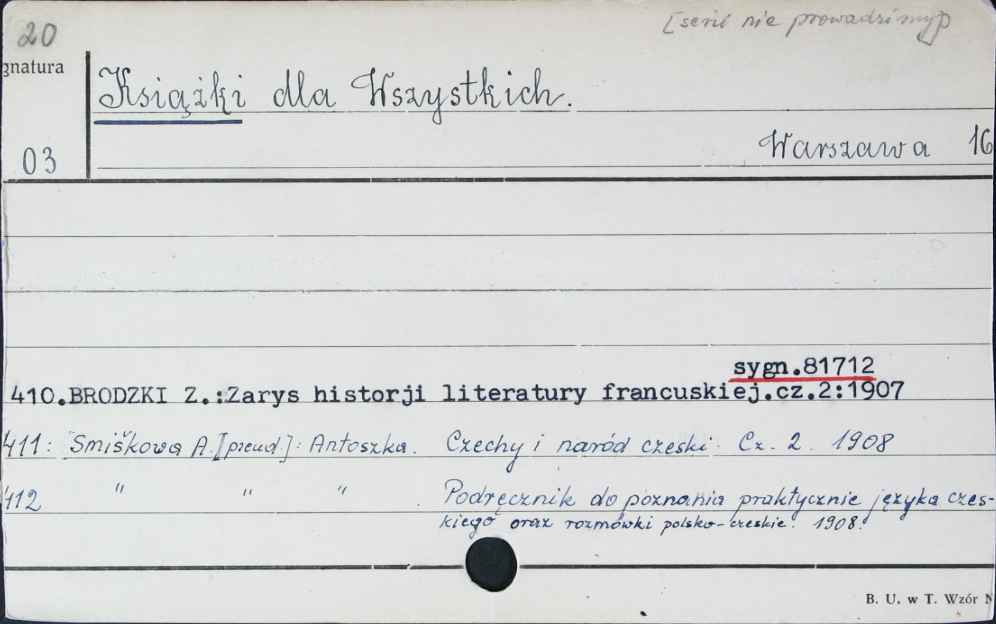 20 [serii nie prowadzimy]
gnatura
Książki dla Wszystkich.
03 Warszawa 16
sygn.81712
410.BRODZKI Z.:Zarys historji literatury francuskiej.cz.2:1907
411: Smiškova A.[pseud]: Antoszka. Czechy i naród czeski. Cz. 2. 1908
412 " " " . Podręcznik do poznania praktycznie języka czes-
kiego oraz rozmówki polsko-czeskie. 1908.
B. U. w T. Wzór N